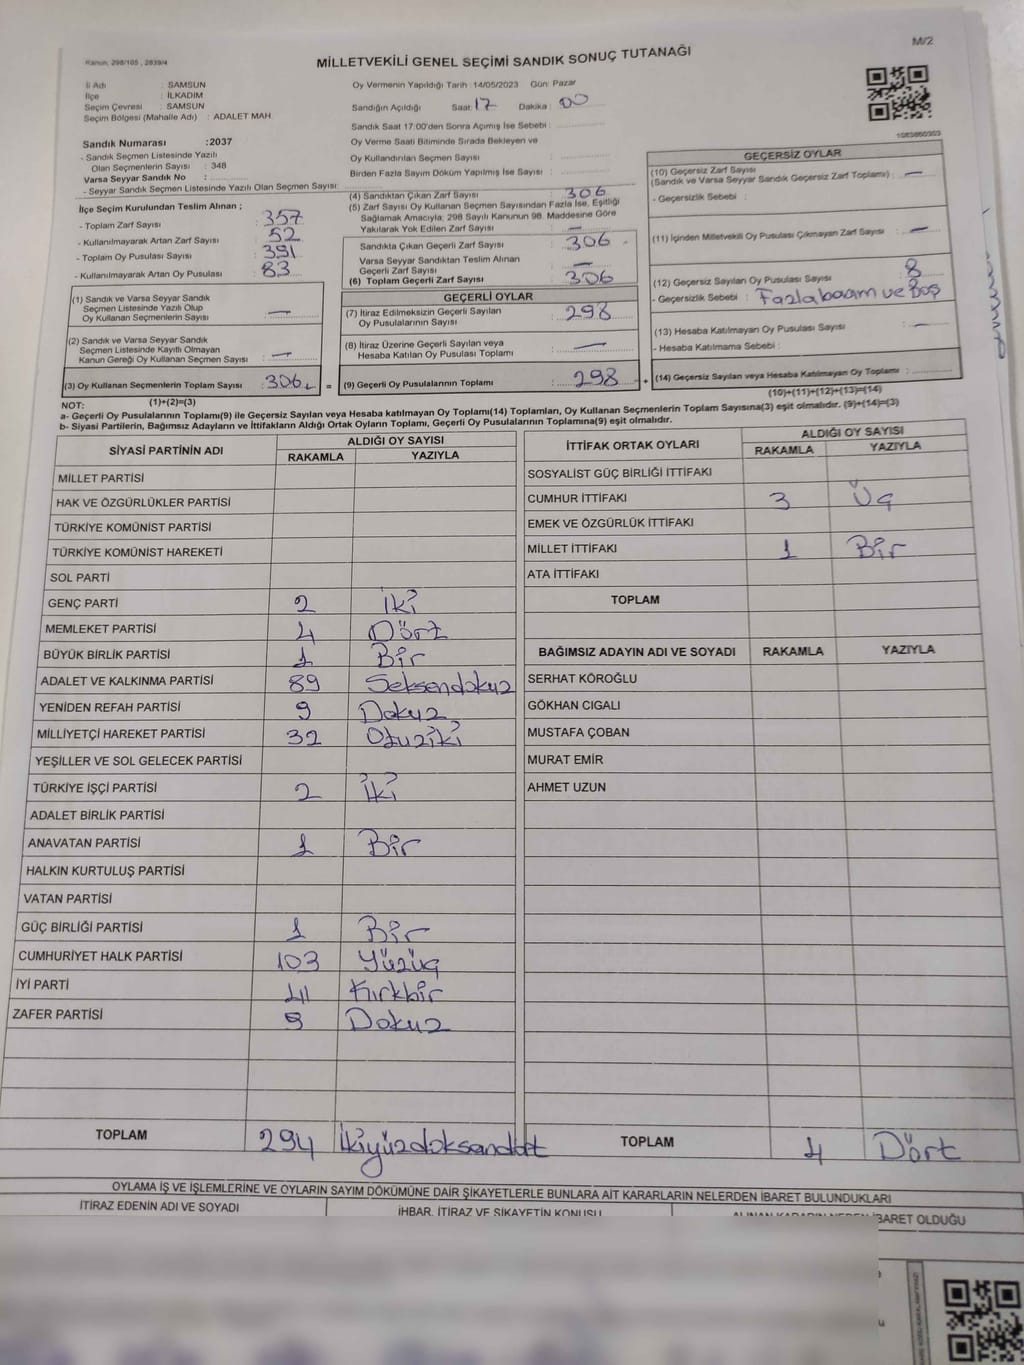 M/2
Kanun, 298/105 , 2839/4
MİLLETVEKİLİ GENEL SEÇİMİ SANDIK SONUÇ TUTANAĞI
İl Adı : SAMSUN
İlçe : İLKADIM
Seçim Çevresi : SAMSUN
Seçim Bölgesi (Mahalle Adı) : ADALET MAH.
Sandık Numarası :2037
- Sandık Seçmen Listesinde Yazılı
Olan Seçmenlerin Sayısı : 348
Varsa Seyyar Sandık No :
- Seyyar Sandık Seçmen Listesinde Yazılı Olan Seçmen Sayısı
Oy Vermenin Yapıldığı Tarih : 14/05/2023 Gün: Pazar
Sandığın Açıldığı Saat: 17 Dakika : 00
Sandık Saat 17:00'den Sonra Açımış İse Sebebi :
Oy Verme Saati Bitiminde Sırada Bekleyen ve
Oy Kullandırılan Seçmen Sayısı
Birden Fazla Sayım Döküm Yapılmış İse Sayısı :
İlçe Seçim Kurulundan Teslim Alınan ;
- Toplam Zarf Sayısı : 357
- Kullanılmayarak Artan Zarf Sayısı : 52
- Toplam Oy Pusulası Sayısı : 391
- Kullanılmayarak Artan Oy Pusulası : 83
(1) Sandık ve Varsa Seyyar Sandık
Seçmen Listesinde Yazılı Olup
Oy Kullanan Seçmenlerin Sayısı : —
(2) Sandık ve Varsa Seyyar Sandık
Seçmen Listesinde Kayıtlı Olmayan
Kanun Gereği Oy Kullanan Seçmen Sayısı : —
(3) Oy Kullanan Seçmenlerin Toplam Sayısı : 306 =
(1)+(2)=(3)
(4) Sandıktan Çıkan Zarf Sayısı : 306
(5) Zarf Sayısı Oy Kullanan Seçmen Sayısından Fazla İse, Eşitliği
Sağlamak Amacıyla; 298 Sayılı Kanunun 98. Maddesine Göre
Yakılarak Yok Edilen Zarf Sayısı : —
Sandıkta Çıkan Geçerli Zarf Sayısı : 306
Varsa Seyyar Sandıktan Teslim Alınan
Geçerli Zarf Sayısı : —
(6) Toplam Geçerli Zarf Sayısı : 306
GEÇERLİ OYLAR
(7) İtiraz Edilmeksizin Geçerli Sayılan
Oy Pusulalarının Sayısı : 298
(8) İtiraz Üzerine Geçerli Sayılan veya
Hesaba Katılan Oy Pusulası Toplamı : —
(9) Geçerli Oy Pusulalarının Toplamı : 298 +
1083860303
GEÇERSİZ OYLAR
(10) Geçersiz Zarf Sayısı
(Sandık ve Varsa Seyyar Sandık Geçersiz Zarf Toplamı) : —
- Geçersizlik Sebebi :
(11) İçinden Milletvekili Oy Pusulası Çıkmayan Zarf Sayısı : —
(12) Geçersiz Sayılan Oy Pusulası Sayısı : 8
- Geçersizlik Sebebi : Fazla basım ve Boş
(13) Hesaba Katılmayan Oy Pusulası Sayısı : —
- Hesaba Katılmama Sebebi :
(14) Geçersiz Sayılan veya Hesaba Katılmayan Oy Toplamı :
(10)+(11)+(12)+(13)=(14)
NOT:
a- Geçerli Oy Pusulalarının Toplamı(9) ile Geçersiz Sayılan veya Hesaba katılmayan Oy Toplamı(14) Toplamları, Oy Kullanan Seçmenlerin Toplam Sayısına(3) eşit olmalıdır. (9)+(14)=(3)
b- Siyasi Partilerin, Bağımsız Adayların ve İttifakların Aldığı Ortak Oyların Toplamı, Geçerli Oy Pusulalarının Toplamına(9) eşit olmalıdır.
SİYASİ PARTİNİN ADI ALDIĞI OY SAYISI
RAKAMLA YAZIYLA
MİLLET PARTİSİ
HAK VE ÖZGÜRLÜKLER PARTİSİ
TÜRKİYE KOMÜNİST PARTİSİ
TÜRKİYE KOMÜNİST HAREKETİ
SOL PARTİ
GENÇ PARTİ 2 İki
MEMLEKET PARTİSİ 4 Dört
BÜYÜK BİRLİK PARTİSİ 1 Bir
ADALET VE KALKINMA PARTİSİ 89 Seksendokuz
YENİDEN REFAH PARTİSİ 9 Dokuz
MİLLİYETÇİ HAREKET PARTİSİ 32 Otuziki
YEŞİLLER VE SOL GELECEK PARTİSİ
TÜRKİYE İŞÇİ PARTİSİ 2 İki
ADALET BİRLİK PARTİSİ
ANAVATAN PARTİSİ 1 Bir
HALKIN KURTULUŞ PARTİSİ
VATAN PARTİSİ
GÜÇ BİRLİĞİ PARTİSİ 1 Bir
CUMHURİYET HALK PARTİSİ 103 Yüzüç
İYİ PARTİ 41 Kırkbir
ZAFER PARTİSİ 9 Dokuz
TOPLAM 294 İkiyüzdoksandört
İTTİFAK ORTAK OYLARI ALDIĞI OY SAYISI
RAKAMLA YAZIYLA
SOSYALİST GÜÇ BİRLİĞİ İTTİFAKI
CUMHUR İTTİFAKI 3 Üç
EMEK VE ÖZGÜRLÜK İTTİFAKI
MİLLET İTTİFAKI 1 Bir
ATA İTTİFAKI
TOPLAM
BAĞIMSIZ ADAYIN ADI VE SOYADI RAKAMLA YAZIYLA
SERHAT KÖROĞLU
GÖKHAN CIGALI
MUSTAFA ÇOBAN
MURAT EMİR
AHMET UZUN
TOPLAM 4 Dört
OYLAMA İŞ VE İŞLEMLERİNE VE OYLARIN SAYIM DÖKÜMÜNE DAİR ŞİKAYETLERLE BUNLARA AİT KARARLARIN NELERDEN İBARET BULUNDUKLARI
İTİRAZ EDENİN ADI VE SOYADI İHBAR, İTİRAZ VE ŞİKAYETİN KONUSU ALINAN KARARIN NEDEN İBARET OLDUĞU